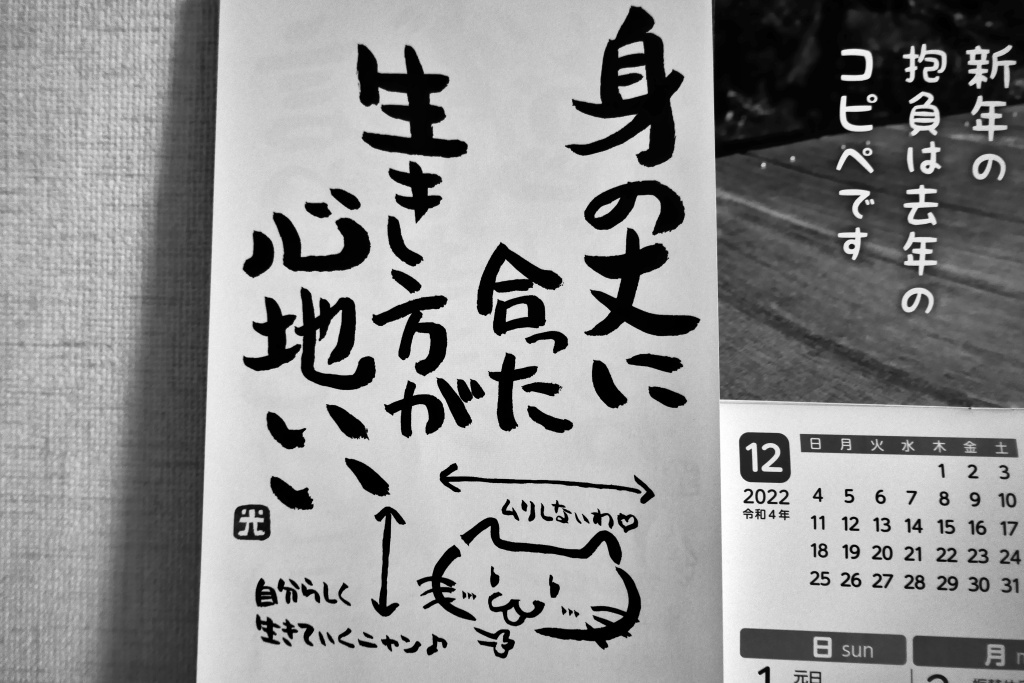 身の丈に
合った
生き方が
心地いい
ムリしないわ♡
自分らしく
生きていくニャン♪
光
新年の
抱負は去年の
コピペです
12
2022
令和4年
日 月 火 水 木 金 土
1 2 3
4 5 6 7 8 9 10
11 12 13 14 15 16 17
18 19 20 21 22 23 24
25 26 27 28 29 30 31
日 sun
月
1 元日